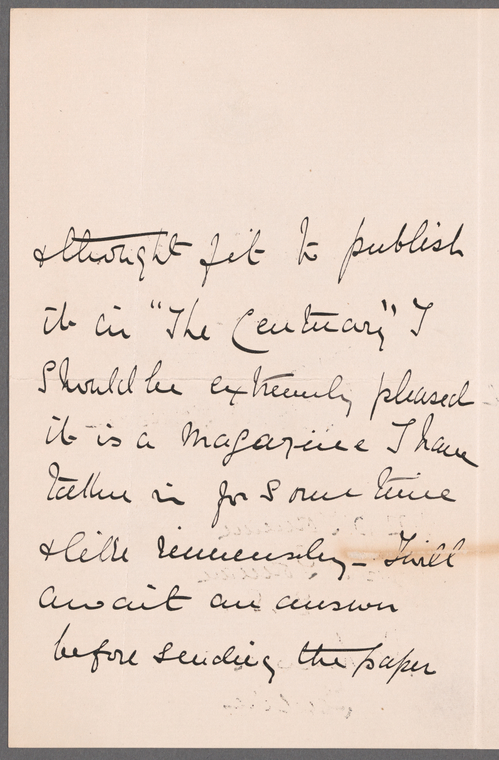 & thought fit to publish
it in "The Centuary" I
should be extremely pleased
it is a magazine I have
taken in for some time
& like immensely – I will
await an answer
before sending the paper